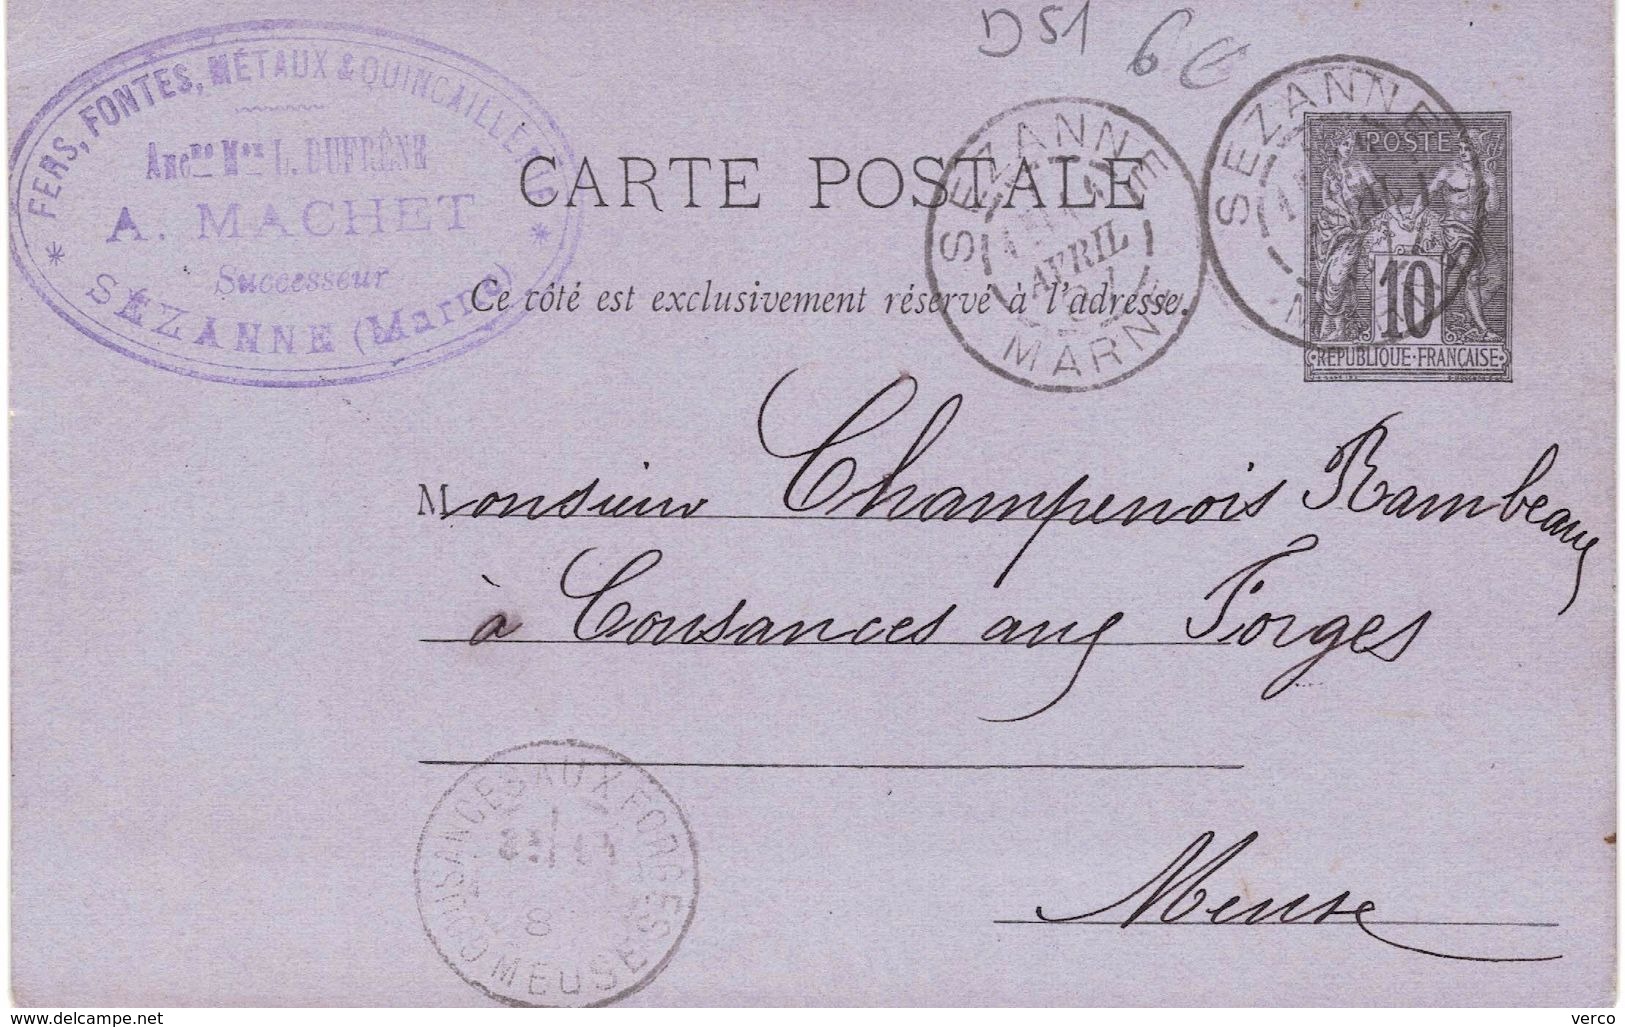 D S1 6 €
FERS, FONTES, MÉTAUX & QUINCAILLERIE
Ancne Mon L. DUFRÊNE
A. MACHET
Successeur
* SÉZANNE (Marne) *
SEZANNE
AVRIL
MARNE
SEZANNE
POSTE
10
RÉPUBLIQUE·FRANÇAISE
CARTE POSTALE
Ce côté est exclusivement réservé à l'adresse.
Monsieur Champenois Rambeaux
à Cousances aux Forges
Meuse
COUSANCES AUX FORGES
8
MEUSE
www.delcampe.net
verco